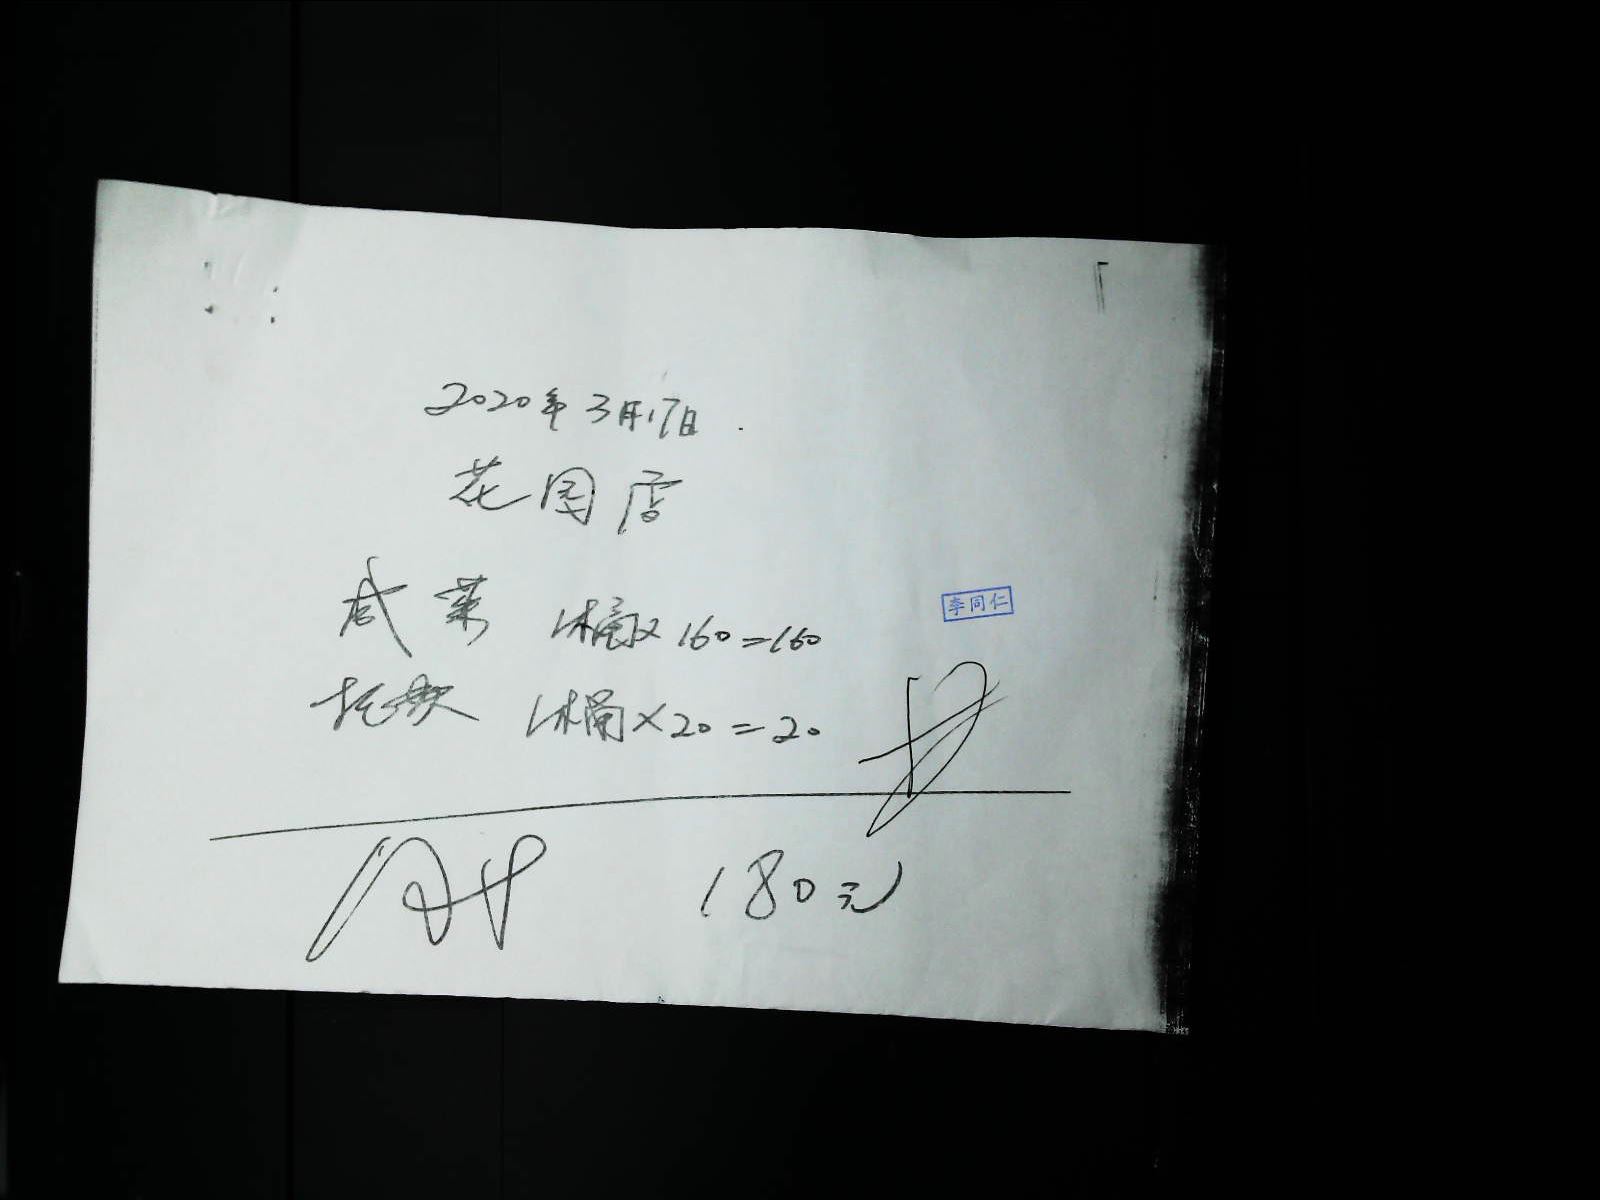 2020年3月17日
花园店
咸菜 1桶×160=160
李同仁
1桶×20=20
180元